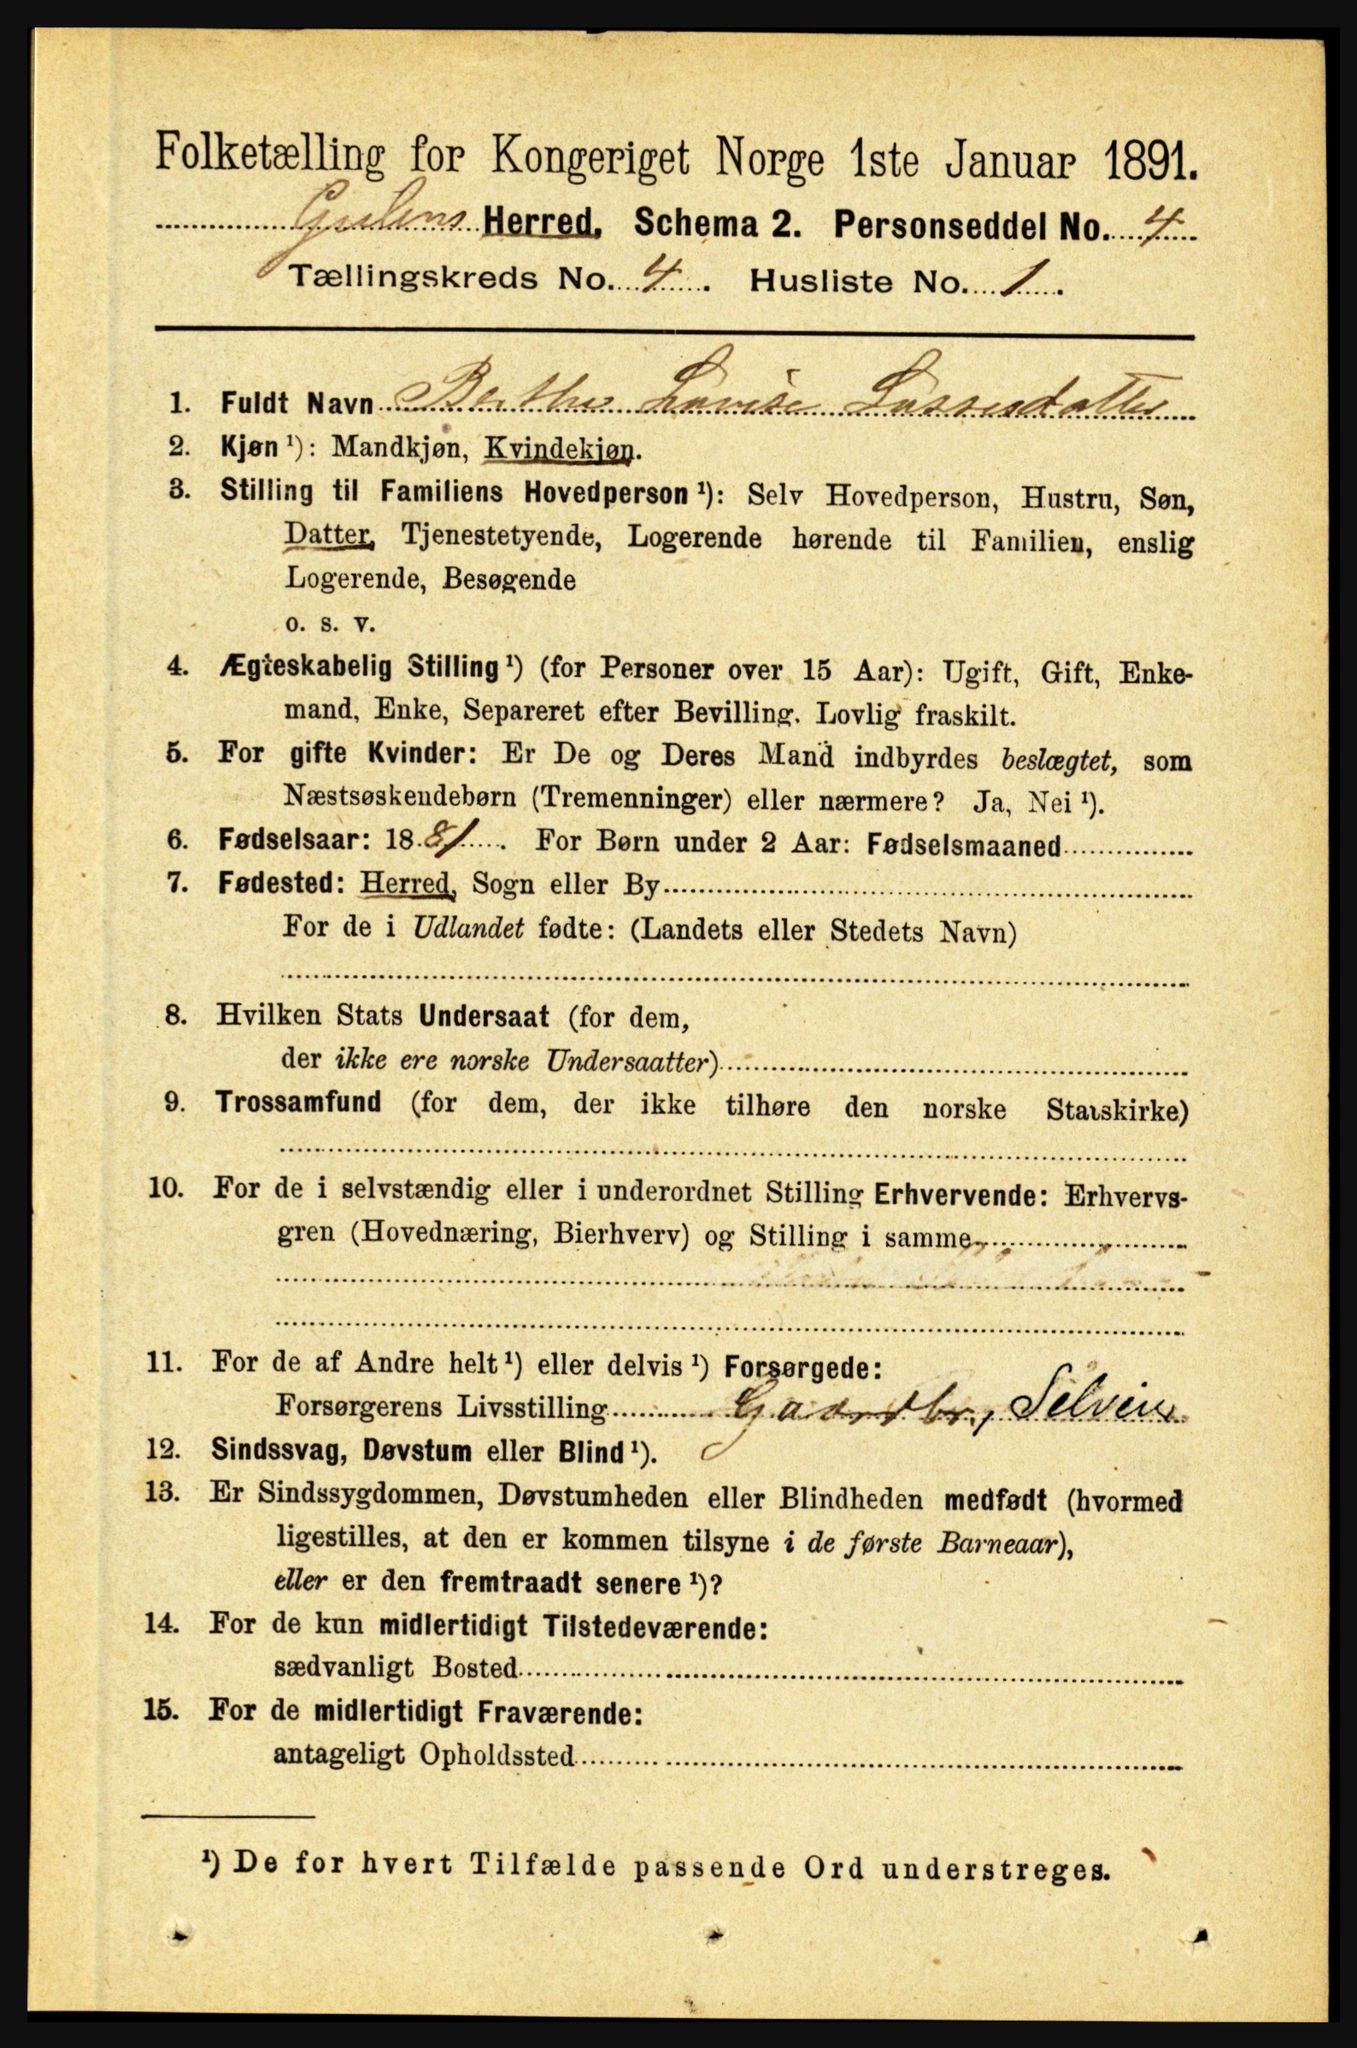 Folketælling for Kongeriget Norge 1ste Januar 1891.
Gulens Herred. Schema 2. Personseddel No. 4
Tællingskreds No. 4. Husliste No. 1.
1. Fuldt Navn Berthe Lovise Lassesdatter
2. Kjøn ¹): Mandkjøn, Kvindekjøn.
3. Stilling til Familiens Hovedperson ¹): Selv Hovedperson, Hustru, Søn,
Datter, Tjenestetyende, Logerende hørende til Familien, enslig
Logerende, Besøgende
o. s. v.
4. Ægteskabelig Stilling ¹) (for Personer over 15 Aar): Ugift, Gift, Enke-
mand, Enke, Separeret efter Bevilling. Lovlig fraskilt.
5. For gifte Kvinder: Er De og Deres Mand indbyrdes beslægtet, som
Næstsøskendebørn (Tremenninger) eller nærmere? Ja, Nei ¹).
6. Fødselsaar: 1881. For Børn under 2 Aar: Fødselsmaaned
7. Fødested: Herred, Sogn eller By
For de i Udlandet fødte: (Landets eller Stedets Navn)
8. Hvilken Stats Undersaat (for dem,
der ikke ere norske Undersaatter)
9. Trossamfund (for dem, der ikke tilhøre den norske Statskirke)
10. For de i selvstændig eller i underordnet Stilling Erhvervende: Erhvervs-
gren (Hovednæring, Bierhverv) og Stilling i samme
11. For de af Andre helt ¹) eller delvis ¹) Forsørgede:
Forsørgerens Livsstilling Gaardbr, Selveier
12. Sindssvag, Døvstum eller Blind ¹).
13. Er Sindssygdommen, Døvstumheden eller Blindheden medfødt (hvormed
ligestilles, at den er kommen tilsyne i de første Barneaar),
eller er den fremtraadt senere ¹)?
14. For de kun midlertidigt Tilstedeværende:
sædvanligt Bosted
15. For de midlertidigt Fraværende:
antageligt Opholdssted
¹) De for hvert Tilfælde passende Ord understreges.